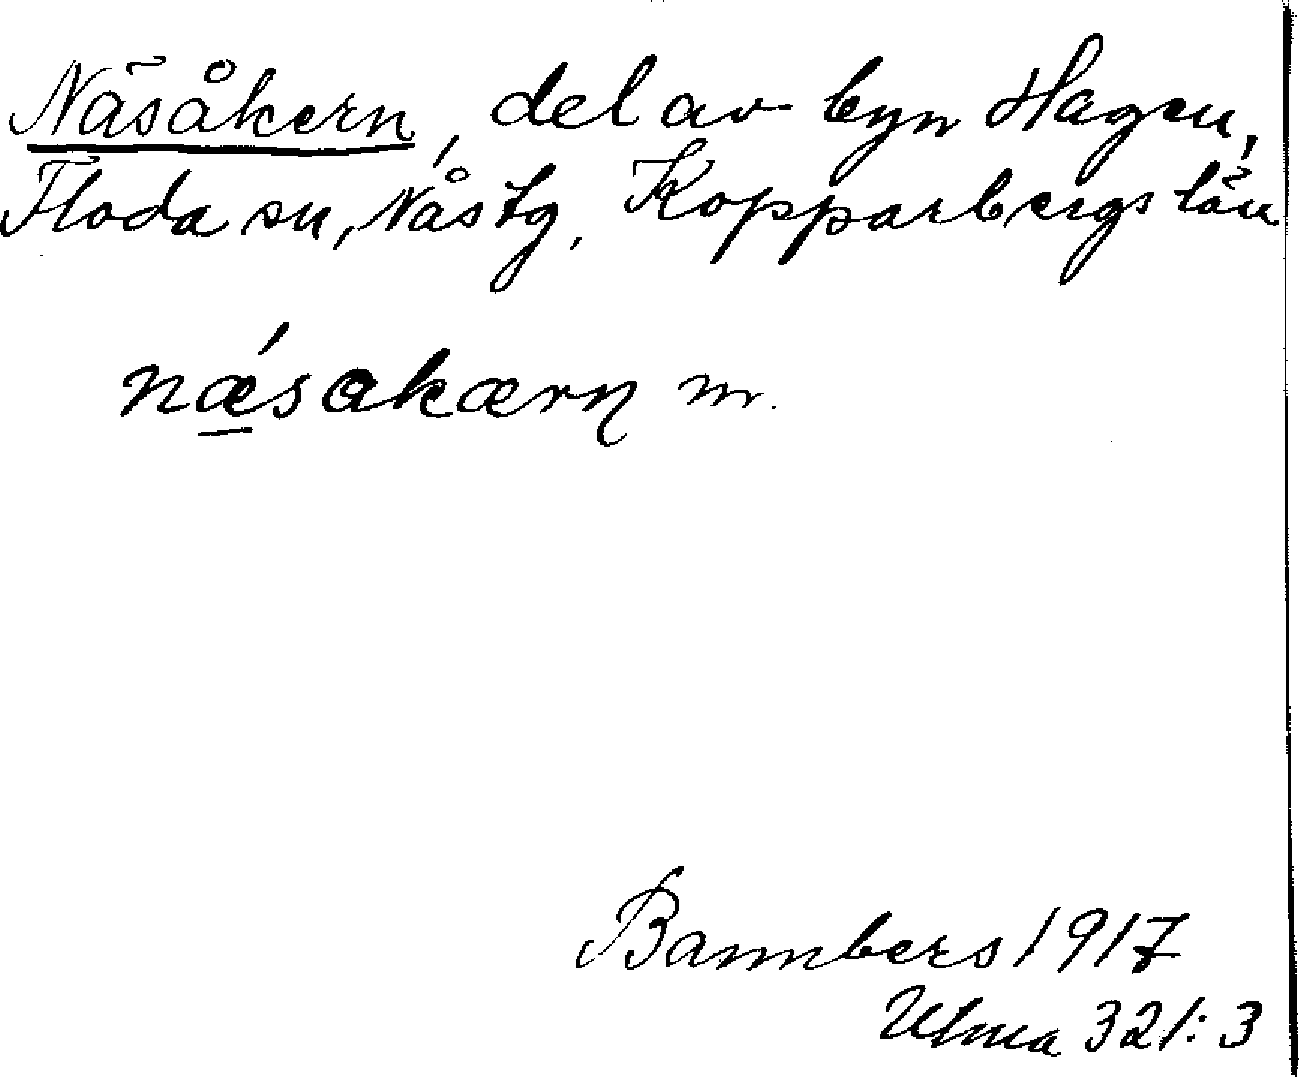 Näsåkern, del av byn Hagen,
Floda sn, Nås tg, Kopparbergs län
nǽ̲sakærn m.
Bannbers 1917
Ulma 321:3